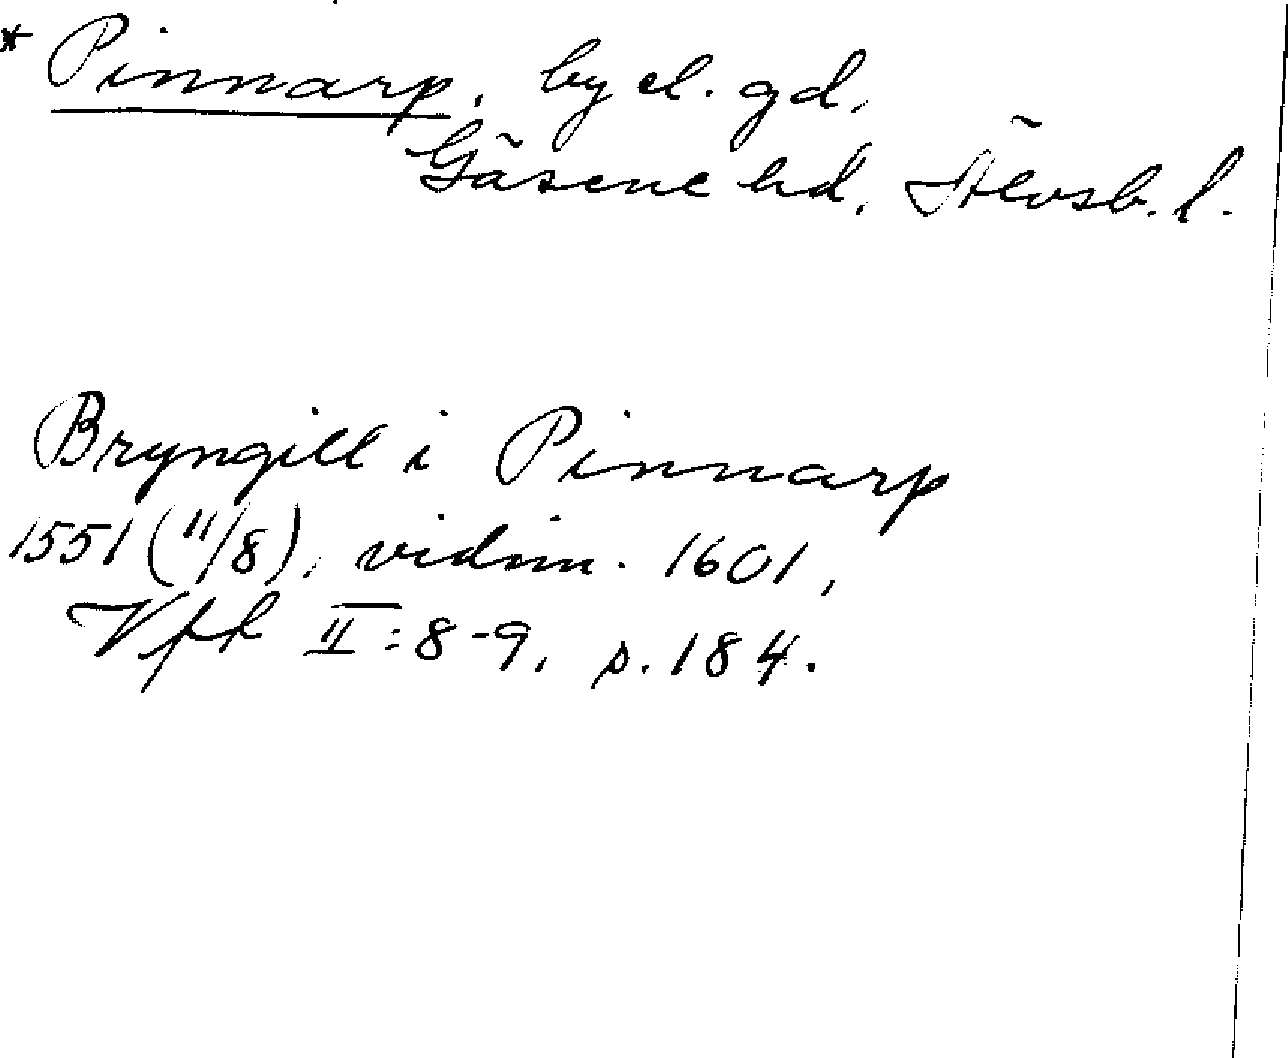 * Pinnarp, by el. gd,
Gäsene hd, Älvsb. l.
Bryngill i Pinnarp
1551 (11/8), vidim. 1601,
Vfk II:8-9, s. 184.